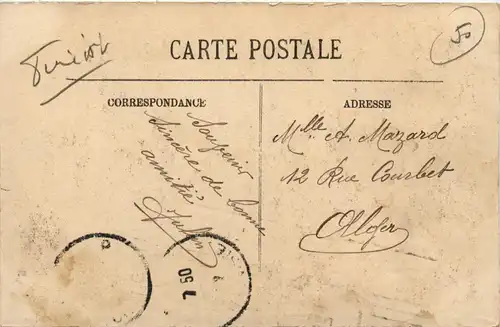 50
CARTE POSTALE
CORRESPONDANCE
Souvenir
Sincère de bonne
amitié
ADRESSE
Mlle A. Mazard
12 Rue Courbet
Alger
7 50